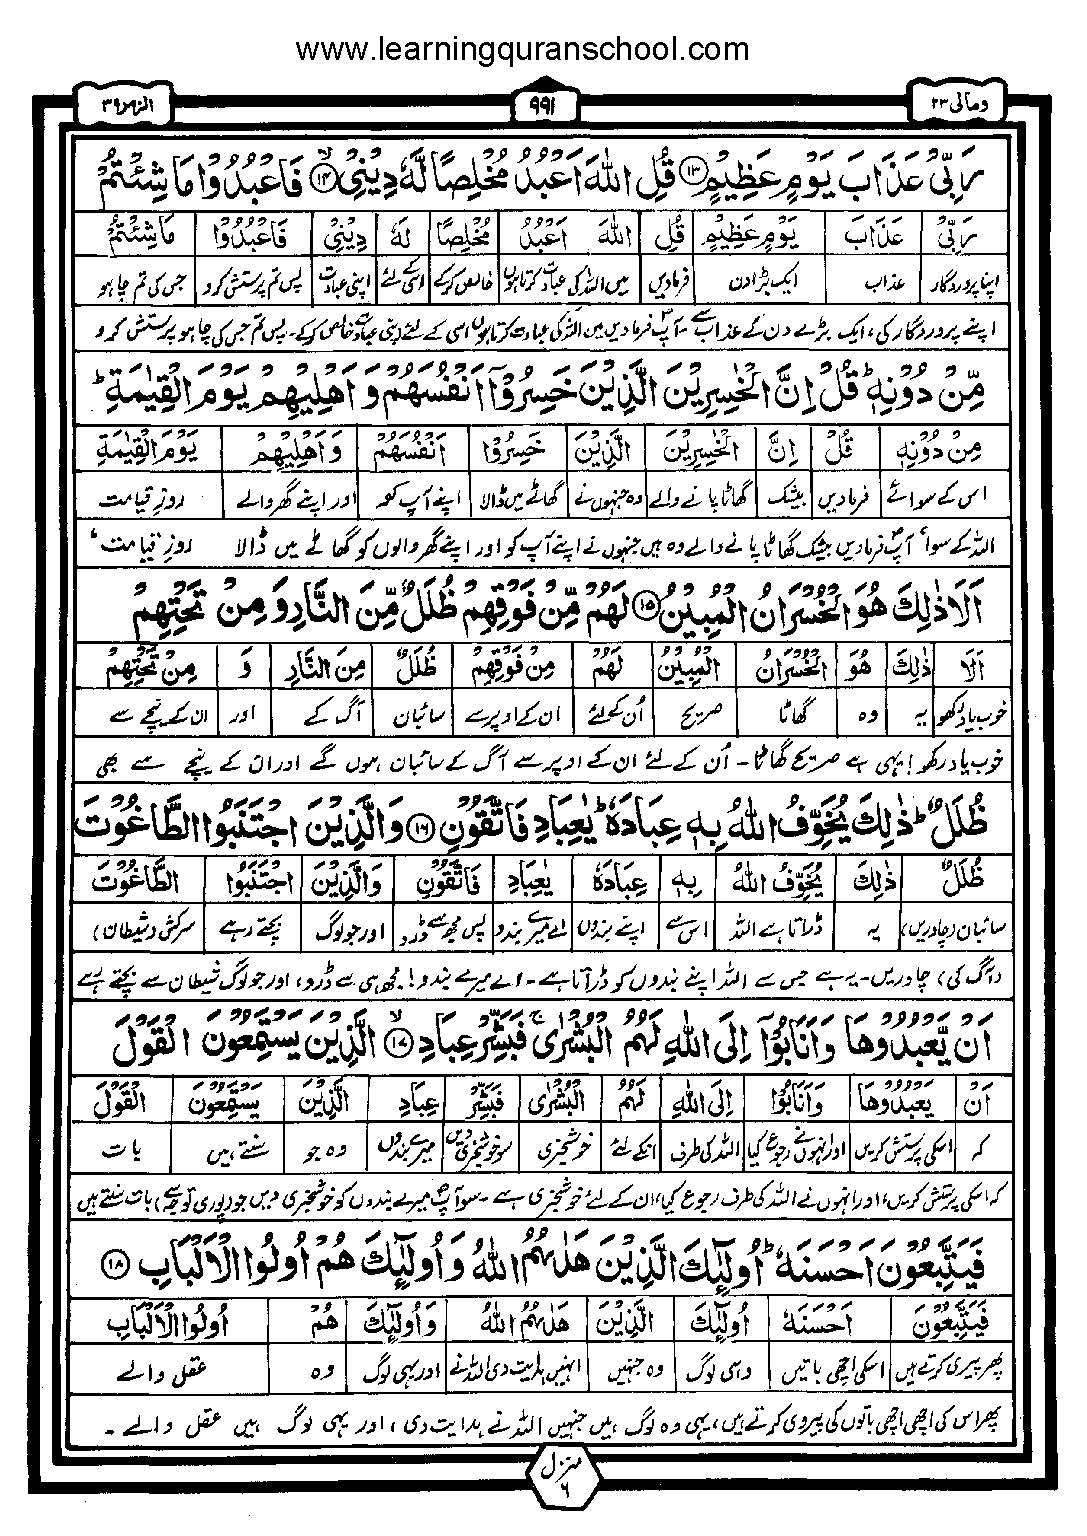 www.learningquranschool.com
ومالی ۲۳
۹۹۱
الزمر ۳۹
رَبِّیْ عَذَابَ یَوْمٍ عَظِیْمٍ ۱۳ قُلِ اللّٰهَ اَعْبُدُ مُخْلِصًا لَّهٗ دِیْنِیْ ۱۴ فَاعْبُدُوْا مَا شِئْتُمْ
رَبِّیْ عَذَابَ یَوْمٍ عَظِیْمٍ قُلِ اللّٰهَ اَعْبُدُ مُخْلِصًا لَهٗ دِیْنِیْ فَاعْبُدُوْا مَا شِئْتُمْ
اپنا پروردگار عذاب ایک بڑا دن فرمادیں میں اللہ کی عبادت کرتا ہوں خالص کرکے اسی کے لئے اپنی عبادت پس تم پرستش کرو جس کی تم چاہو
اپنے پروردگار کی، ایک بڑے دن کے عذاب سے۔ آپؐ فرمادیں میں اللہ کی عبادت کرتا ہوں اسی کے لئے اپنی عبادت خالص کرکے۔ پس تم جس کی چاہو پرستش کرو
مِّنْ دُوْنِهٖ ؕ قُلْ اِنَّ الْخٰسِرِیْنَ الَّذِیْنَ خَسِرُوْۤا اَنْفُسَهُمْ وَ اَهْلِیْهِمْ یَوْمَ الْقِیٰمَةِ ؕ
مِنْ دُوْنِهٖ قُلْ اِنَّ الْخٰسِرِیْنَ الَّذِیْنَ خَسِرُوْا اَنْفُسَهُمْ وَاَهْلِیْهِمْ یَوْمَ الْقِیٰمَةِ
اس کے سوائے فرمادیں بیشک گھاٹا پانے والے وہ جنہوں نے گھاٹے میں ڈالا اپنے آپ کو اور اپنے گھر والے روزِ قیامت
اللہ کے سوا، آپؐ فرمادیں بیشک گھاٹا پانے والے وہ ہیں جنہوں نے اپنے آپ کو اور اپنے گھر والوں کو گھاٹے میں ڈالا روزِ قیامت،
اَلَا ذٰلِكَ هُوَ الْخُسْرَانُ الْمُبِیْنُ ۱۵ لَهُمْ مِّنْ فَوْقِهِمْ ظُلَلٌ مِّنَ النَّارِ وَ مِنْ تَحْتِهِمْ
اَلَا ذٰلِكَ هُوَ الْخُسْرَانُ الْمُبِیْنُ لَهُمْ مِنْ فَوْقِهِمْ ظُلَلٌ مِنَ النَّارِ وَ مِنْ تَحْتِهِمْ
خوب یاد رکھو یہ وہ گھاٹا صریح اُن کے لئے ان کے اوپر سے سائبان آگ کے اور ان کے نیچے سے
خوب یاد رکھو! یہی ہے صریح گھاٹا۔ اُن کے لئے ان کے اوپر سے آگ کے سائبان ہوں گے اور ان کے نیچے سے بھی
ظُلَلٌ ؕ ذٰلِكَ یُخَوِّفُ اللّٰهُ بِهٖ عِبَادَهٗ ؕ یٰعِبَادِ فَاتَّقُوْنِ ۱۶ وَالَّذِیْنَ اجْتَنَبُوا الطَّاغُوْتَ
ظُلَلٌ ذٰلِكَ یُخَوِّفُ اللّٰهُ بِهٖ عِبَادَهٗ یٰعِبَادِ فَاتَّقُوْنِ وَالَّذِیْنَ اجْتَنَبُوا الطَّاغُوْتَ
سائبان (چادریں) یہ ڈراتا ہے اللہ اس سے اپنے بندوں اے میرے بندو پس مجھ سے ڈرو اور جو لوگ بچتے رہے سرکش (شیطان)
(آگ کی) چادریں۔ یہ ہے جس سے اللہ اپنے بندوں کو ڈراتا ہے۔ اے میرے بندو! مجھ ہی سے ڈرو، اور جو لوگ شیطان سے بچتے رہے
اَنْ یَّعْبُدُوْهَا وَاَنَابُوْۤا اِلَی اللّٰهِ لَهُمُ الْبُشْرٰی ۚ فَبَشِّرْ عِبَادِ ۱۷ الَّذِیْنَ یَسْتَمِعُوْنَ الْقَوْلَ
اَنْ یَعْبُدُوْهَا وَاَنَابُوْا اِلَی اللّٰهِ لَهُمُ الْبُشْرٰی فَبَشِّرْ عِبَادِ الَّذِیْنَ یَسْتَمِعُوْنَ الْقَوْلَ
کہ اسکی پرستش کریں اور انہوں نے رجوع کیا اللہ کی طرف انکے لئے خوشخبری سو خوشخبری دیں میرے بندوں وہ جو سنتے ہیں بات
کہ اسکی پرستش کریں، اور انہوں نے اللہ کی طرف رجوع کیا، ان کے لئے خوشخبری ہے۔ سو آپؐ میرے بندوں کو خوشخبری دیں جو (پوری توجہ سے) بات سنتے ہیں
فَیَتَّبِعُوْنَ اَحْسَنَهٗ ؕ اُولٰٓئِكَ الَّذِیْنَ هَدٰىهُمُ اللّٰهُ وَ اُولٰٓئِكَ هُمْ اُولُوا الْاَلْبَابِ ۱۸
فَیَتَّبِعُوْنَ اَحْسَنَهٗ اُولٰٓئِكَ الَّذِیْنَ هَدٰىهُمُ اللّٰهُ وَاُولٰٓئِكَ هُمْ اُولُوا الْاَلْبَابِ
پھر پیروی کرتے ہیں اسکی اچھی باتیں وہی لوگ وہ جنہیں انہیں ہدایت دی اللہ نے اور یہی لوگ وہ عقل والے
پھر اس کی اچھی اچھی باتوں کی پیروی کرتے ہیں، یہی وہ لوگ ہیں جنہیں اللہ نے ہدایت دی، اور یہی لوگ ہیں عقل والے۔
منزل ۶